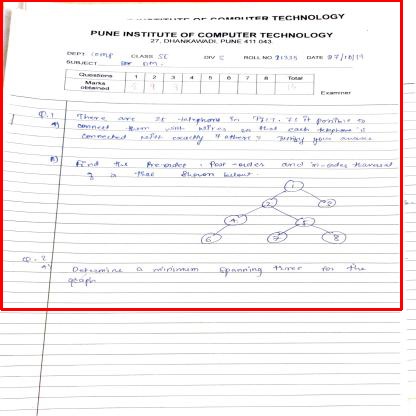 PUNE INSTITUTE OF COMPUTER TECHNOLOGY
PUNE INSTITUTE OF COMPUTER TECHNOLOGY
27, DHANKAWADI, PUNE 411 043.
DEPT. Comp CLASS SE DIV ROLL NO. 21335 DATE 07/10/19
SUBJECT DM.
Questions 1 2 3 4 5 6 7 8 Total
Marks obtained
Examiner
Q.1
A) There are 25 telephone in possible to
connect them with wires so that each telephone is
connected with exactly 7 others? your answer
B) Find the Pre-order, Post-order and in-order traversal
of a tree shown below.
1
2
4 5
6 7 8
Q.2
A) Determine a minimum spanning tree for the
graph